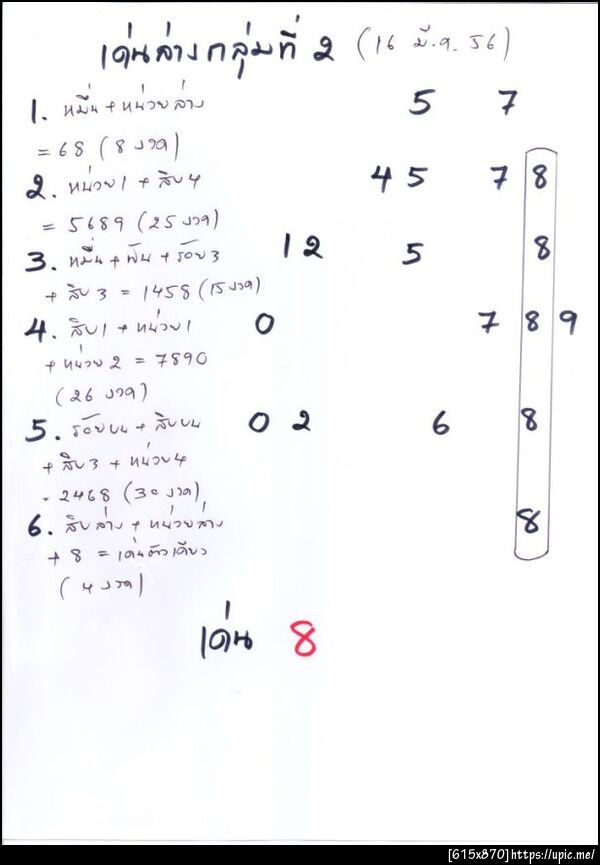 เด่นล่างกลุ่มที่ 2 (16 มี.ค. 56)
1. หมื่น + หน่วยล่าง 5 7
= 68 (8 งวด)
2. หน่วย 1 + สิบ 4 4 5 7 8
= 5689 (25 งวด)
3. หมื่น + พัน + ร้อย 3 1 2 5 8
+ สิบ 3 = 1458 (15 งวด)
4. สิบ 1 + หน่วย 1 0 7 8 9
+ หน่วย 2 = 7890
(26 งวด)
5. ร้อยบน + สิบบน 0 2 6 8
+ สิบ 3 + หน่วย 4
= 2468 (30 งวด)
6. สิบล่าง + หน่วยล่าง 8
+ 8 = เด่นตัวเดียว
(4 งวด)
เด่น 8
[615x870]https://upic.me/